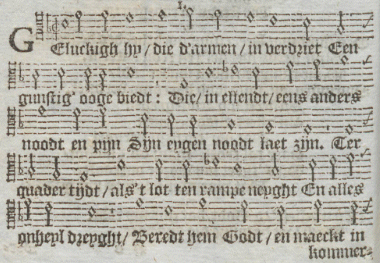 1.
GEluckigh hy / die d'armen / in verdriet Een
gunstig' ooge biedt: Die / in ellendt / eens anders
noodt en pijn Sijn eygen noodt laet zijn. Ter
quader tijdt / als 't lot ten rampe neyght En alles
onheyl dreyght / Beredt hem Godt / en maeckt in
kommer-